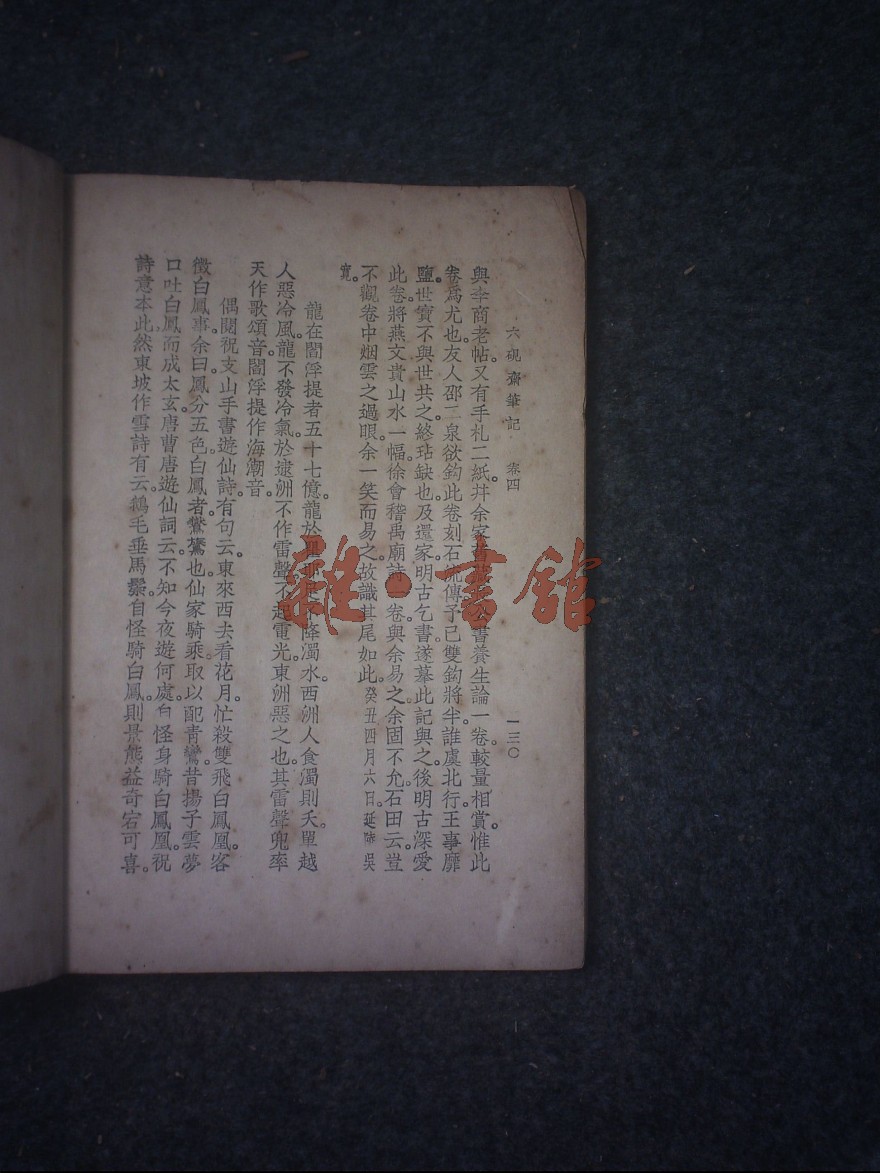 六硯齋筆記 卷四 一三〇
與李商老帖。又有手札二紙。幷余家舊藏 公書養生論一卷。較量相賞。惟此
卷爲尤也。友人邵二泉欲鈎此卷刻石 傳。予已雙鈎將半。誰虞北行。王事靡
鹽。世寶不與世共之。終玷缺也。及還家。明古乞書。遂摹此記與之。後明古深愛
此卷。將燕文貴山水一幅。徐會稽禹廟詩一卷。與余易之。余固不允。石田云。豈
不觀卷中烟雲之過眼。余一笑而易之。故識其尾如此。癸丑四月六日。延陵吳
寬。
龍在閻浮提者五十七億。龍於瞿 降濁水。西洲人食濁則夭。單越
人惡冷風。龍不發冷氣。於逮洲不作雷聲。不起電光。東洲惡之也。其雷聲兜率
天作歌頌音。閻浮提作海潮音。
偶閱祝支山手書遊仙詩。有句云。東來西去看花月。忙殺雙飛白鳳凰。客
徵白鳳事。余曰。鳳分五色。白鳳者。鸑鷟也。仙家騎乘。取以配青鸞。昔揚子雲夢
口吐白鳳。而成太玄。唐曹唐遊仙詞云。不知今夜遊何處。白怪身騎白鳳凰。祝
詩意本此。然東坡作雪詩有云。鵝毛垂馬鬃。自怪騎白鳳。則景態益奇宕可喜。
雜·書館